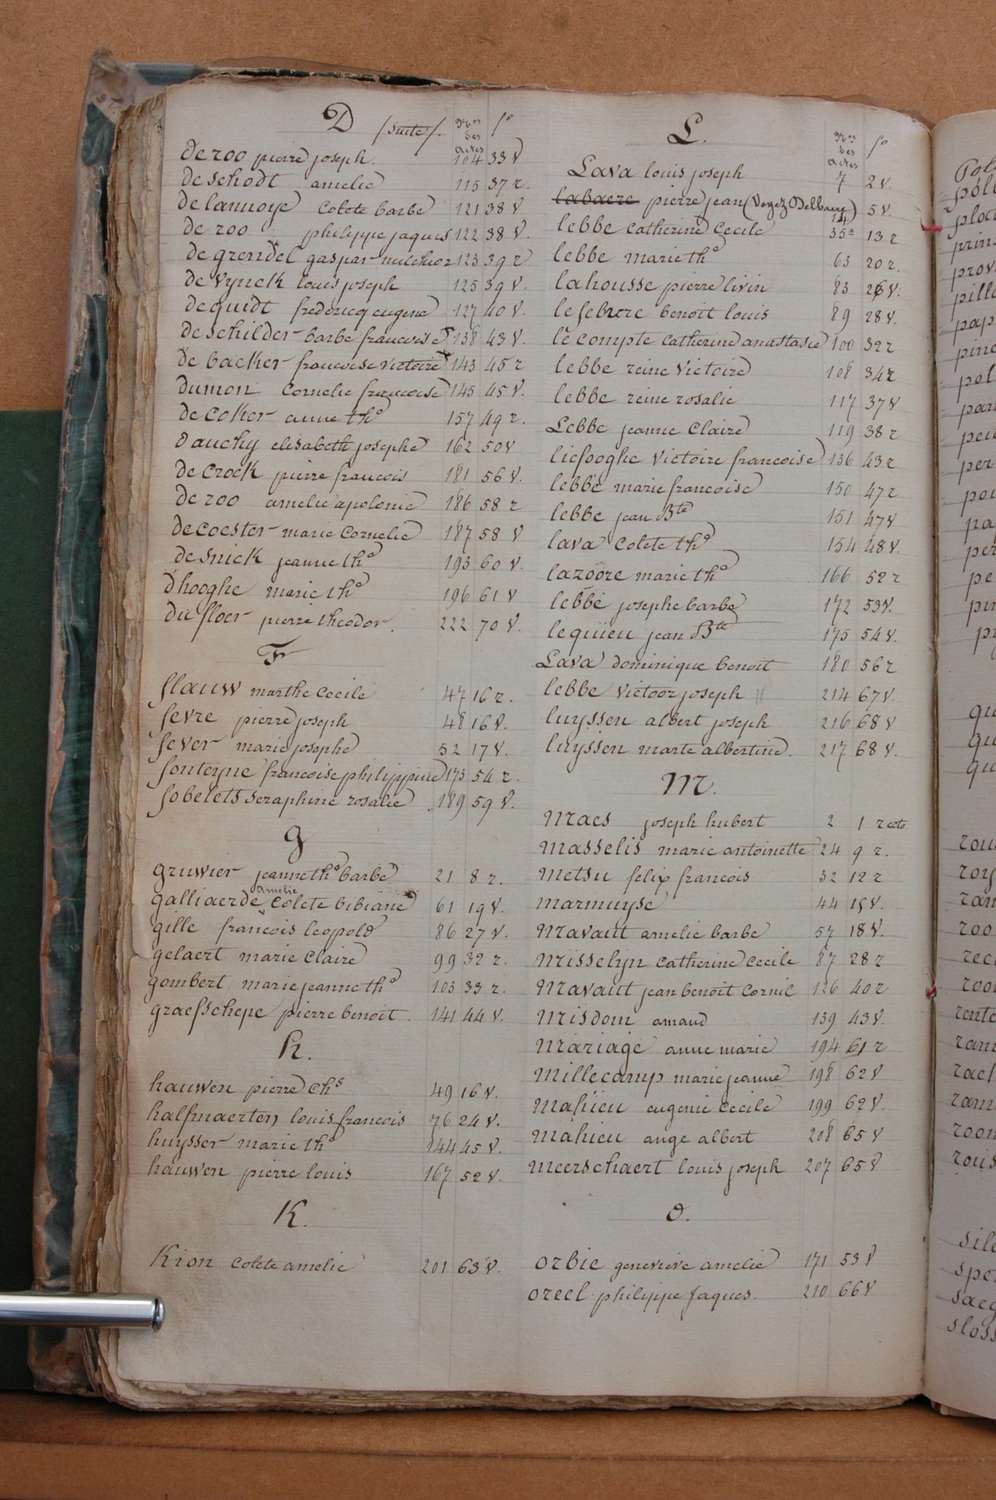 D (suite). Nos des actes fo
de roo pierre joseph. 104 33 V
de schodt amelie 115 37 r.
de lannoye Colete barbe 121 38 V
de roo philippe jaques 122 38 V.
de grendel gaspar melchior 123 39 r
de vynck louis joseph 125 39 V.
de quidt fredericq eugene 127 40 V.
de schilder barbe francoise T. 138 43 V.
de backer francoise victoire 143 45 r
dumon Cornelie francoise 145 45 V.
de Coker anne the 157 49 r.
dauchy elisabeth josephe 162 50 V
de Crock pierre francois 181 56 V.
de roo amelie apolonie 186 58 r
de coester marie Cornelie 187 58 V
de snick jeanne the 193 60 V.
Dhooghe marie the 196 61 V
du floer pierre theodor. 222 70 V.
F
flauw marthe Cecile 47 16 r.
fevre pierre joseph 48 16 V.
fever marie josephe 52 17 V.
fonteyne francoise philippine 173 54 r.
fobelets seraphine rosalie 189 59 V.
g
gruwier jeanne the barbe 21 8 r.
galliaerde amelie Colete bibiane 61 19 V.
gille francois leopold 86 27 V.
gelaert marie Claire 99 32 r.
gombert marie jeanne the 103 33 r.
graefschepe pierre benoit. 141 44 V.
h.
hauwen pierre Chs 49 16 V.
halfmaerten louis francois 76 24 V.
huysser marie the 144 45 V.
hauwen pierre louis 167 52 V.
K.
Kion Colete amelie 201 63 V.
L. Nos des actes fo
Lava louis joseph 7 2 V.
labaere pierre jean (Voyez Delbaere) 14 5 V.
lebbe Catherine Cecile 35 13 r
lebbe marie the 63 20 r.
lahousse pierre livin 83 26 V.
lefebvre benoit louis 89 28 V.
le compte Catherine anastasie 100 32 r
lebbe reine Victoire 108 34 r
lebbe reine rosalie 117 37 V
Lebbe jeanne Claire 119 38 r
liefooghe Victoire francoise 136 43 r
lebbe marie francoise 150 47 r
lebbe jean Bte 151 47 V
lava Colete the 154 48 V.
lazoore marie the 166 52 r
lebbe josephe barbe 172 53 V.
le quieu jean Bte 175 54 V.
Lava dominique benoit 180 56 r
lebbe Victoor joseph 214 67 V.
luyssen albert joseph 216 68 V
luyssen marie albertine. 217 68 V.
M.
Maes joseph hubert 2 1 recto
masselis marie antoinette 24 9 r.
metsu felix francois 32 12 r
marmuyse 44 15 V.
Mavaut amelie barbe 57 18 V.
Misselyn Catherine Cecile 87 28 r
Mavaut jean benoit Cornil 126 40 r
Misdom amand 139 43 V.
Mariage anne marie 194 61 r
Millecamp marie jeanne 198 62 V
Mahieu eugenie Cecile 199 62 V.
Mahieu ange albert 208 65 V
Meerschaert louis joseph 207 65 V
O.
orbie genevieve amelie 171 53 V
oreel philippe Jaques. 210 66 V